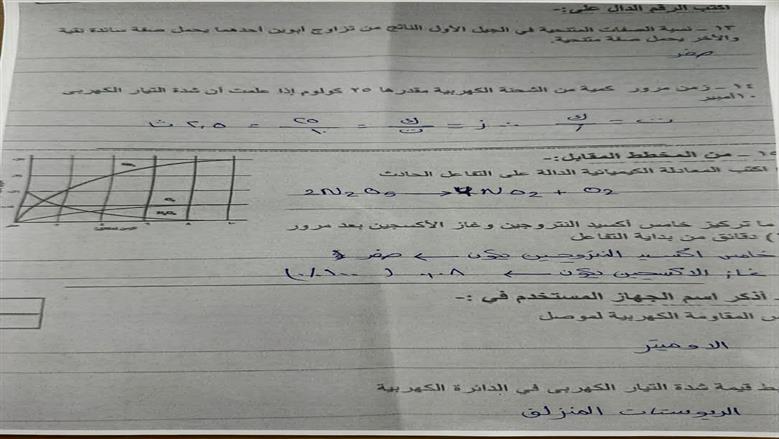 اكتب الرقم الدال على:-
١٣ - نسبة الصفات المتنحية في الجيل الأول الناتج من تزاوج أبوين أحدهما يحمل صفة سائدة نقية
والآخر يحمل صفة متنحية.
صفر
١٤ - زمن مرور كمية من الشحنة الكهربية مقدرها ٢٥ كولوم إذا علمت أن شدة التيار الكهربى
١٠ أمبير
ت = ك / ز ∴ ز = ك / ت = ٢٥ / ١٠ = ٢,٥ ث
- من المخطط المقابل:-
اكتب المعادلة الكيميائية الدالة على التفاعل الحادث
2N₂O₅ → 4NO₂ + O₂
ما تركيز خامس أكسيد النتروجين وغاز الأكسجين بعد مرور
) دقائق من بداية التفاعل
خامس اكسيد النتروجين يكون ← صفر
غاز الاكسجين يكون ←
اذكر اسم الجهاز المستخدم في :-
المقاومة الكهربية لموصل
الاوميتر
قيمة شدة التيار الكهربى في الدائرة الكهربية
الريوستات المنزلق